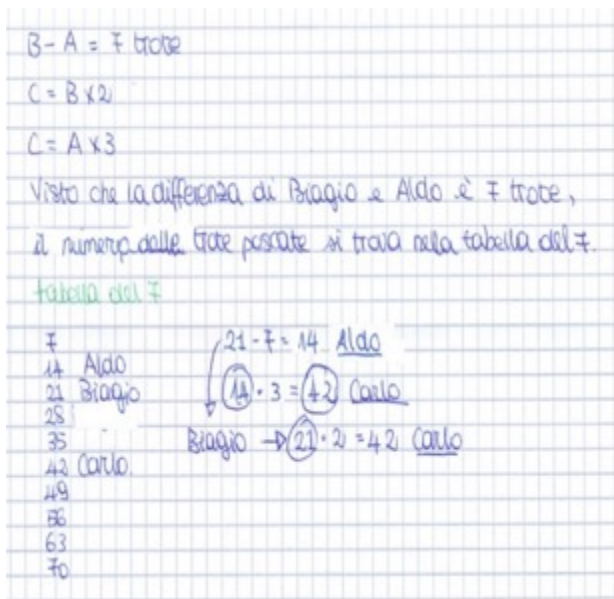 B - A = 7 trote
C = B x 2
C = A x 3
Visto che la differenza di Biagio e Aldo è 7 trote,
il numero delle trote pescate si trova nella tabella del 7.
tabella del 7
7
14 Aldo
21 Biagio
28
35
42 Carlo.
49
56
63
70
21 - 7 = 14 Aldo
14 · 3 = 42 Carlo
Biagio → 21 · 2 = 42 Carlo